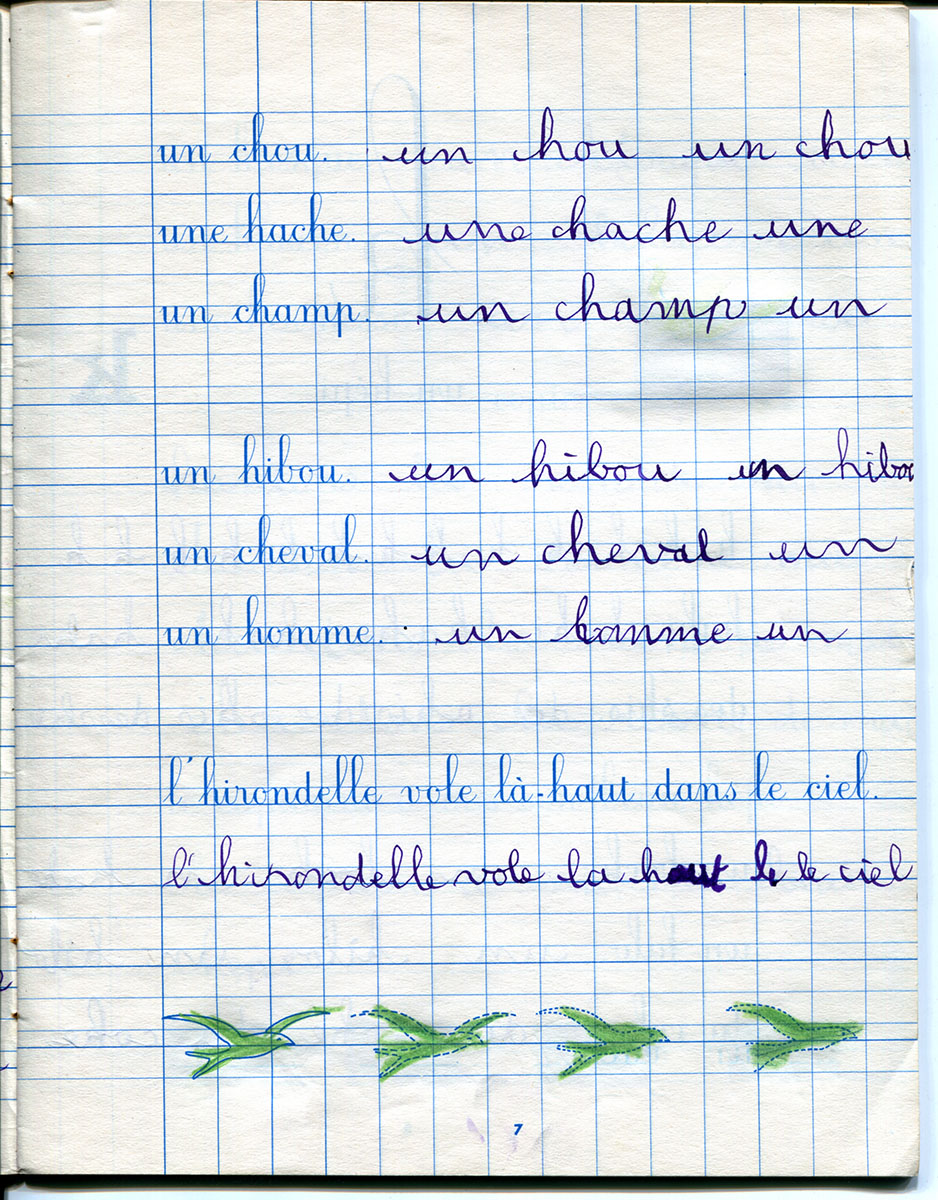 un chou. un hou un chou
une hache. une chache une
un champ. un champ un
un hibou. un hibou un hibou
un cheval. un cheval un
un homme. un homme un
l'hirondelle vole là-haut dans le ciel.
l'hirondelle vole la haut le le ciel
7